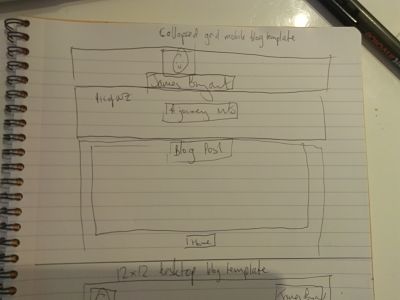 Collapsed grid mobile blog template
James Bryant
A journey into
Blog Post
Home
12x12 desktop blog template
James Bryant